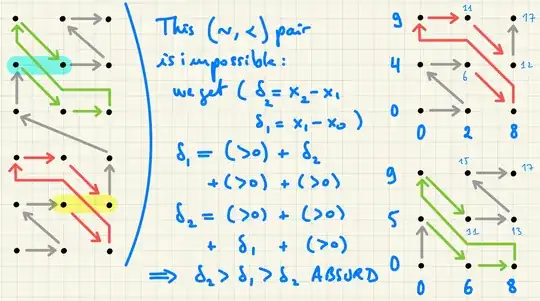 This (~, <) pair
is impossible:
we get ( δ₂ = x₂ - x₁
δ₁ = x₁ - x₀ )
δ₁ = (>0) + δ₂
+ (>0) + (>0)
δ₂ = (>0) + (>0)
+ δ₁ + (>0)
⟹ δ₂ > δ₁ > δ₂ ABSURD
9 11 17
4 6 12
0
0 2 8
9 15 17
5 11 13
0
0 6 8